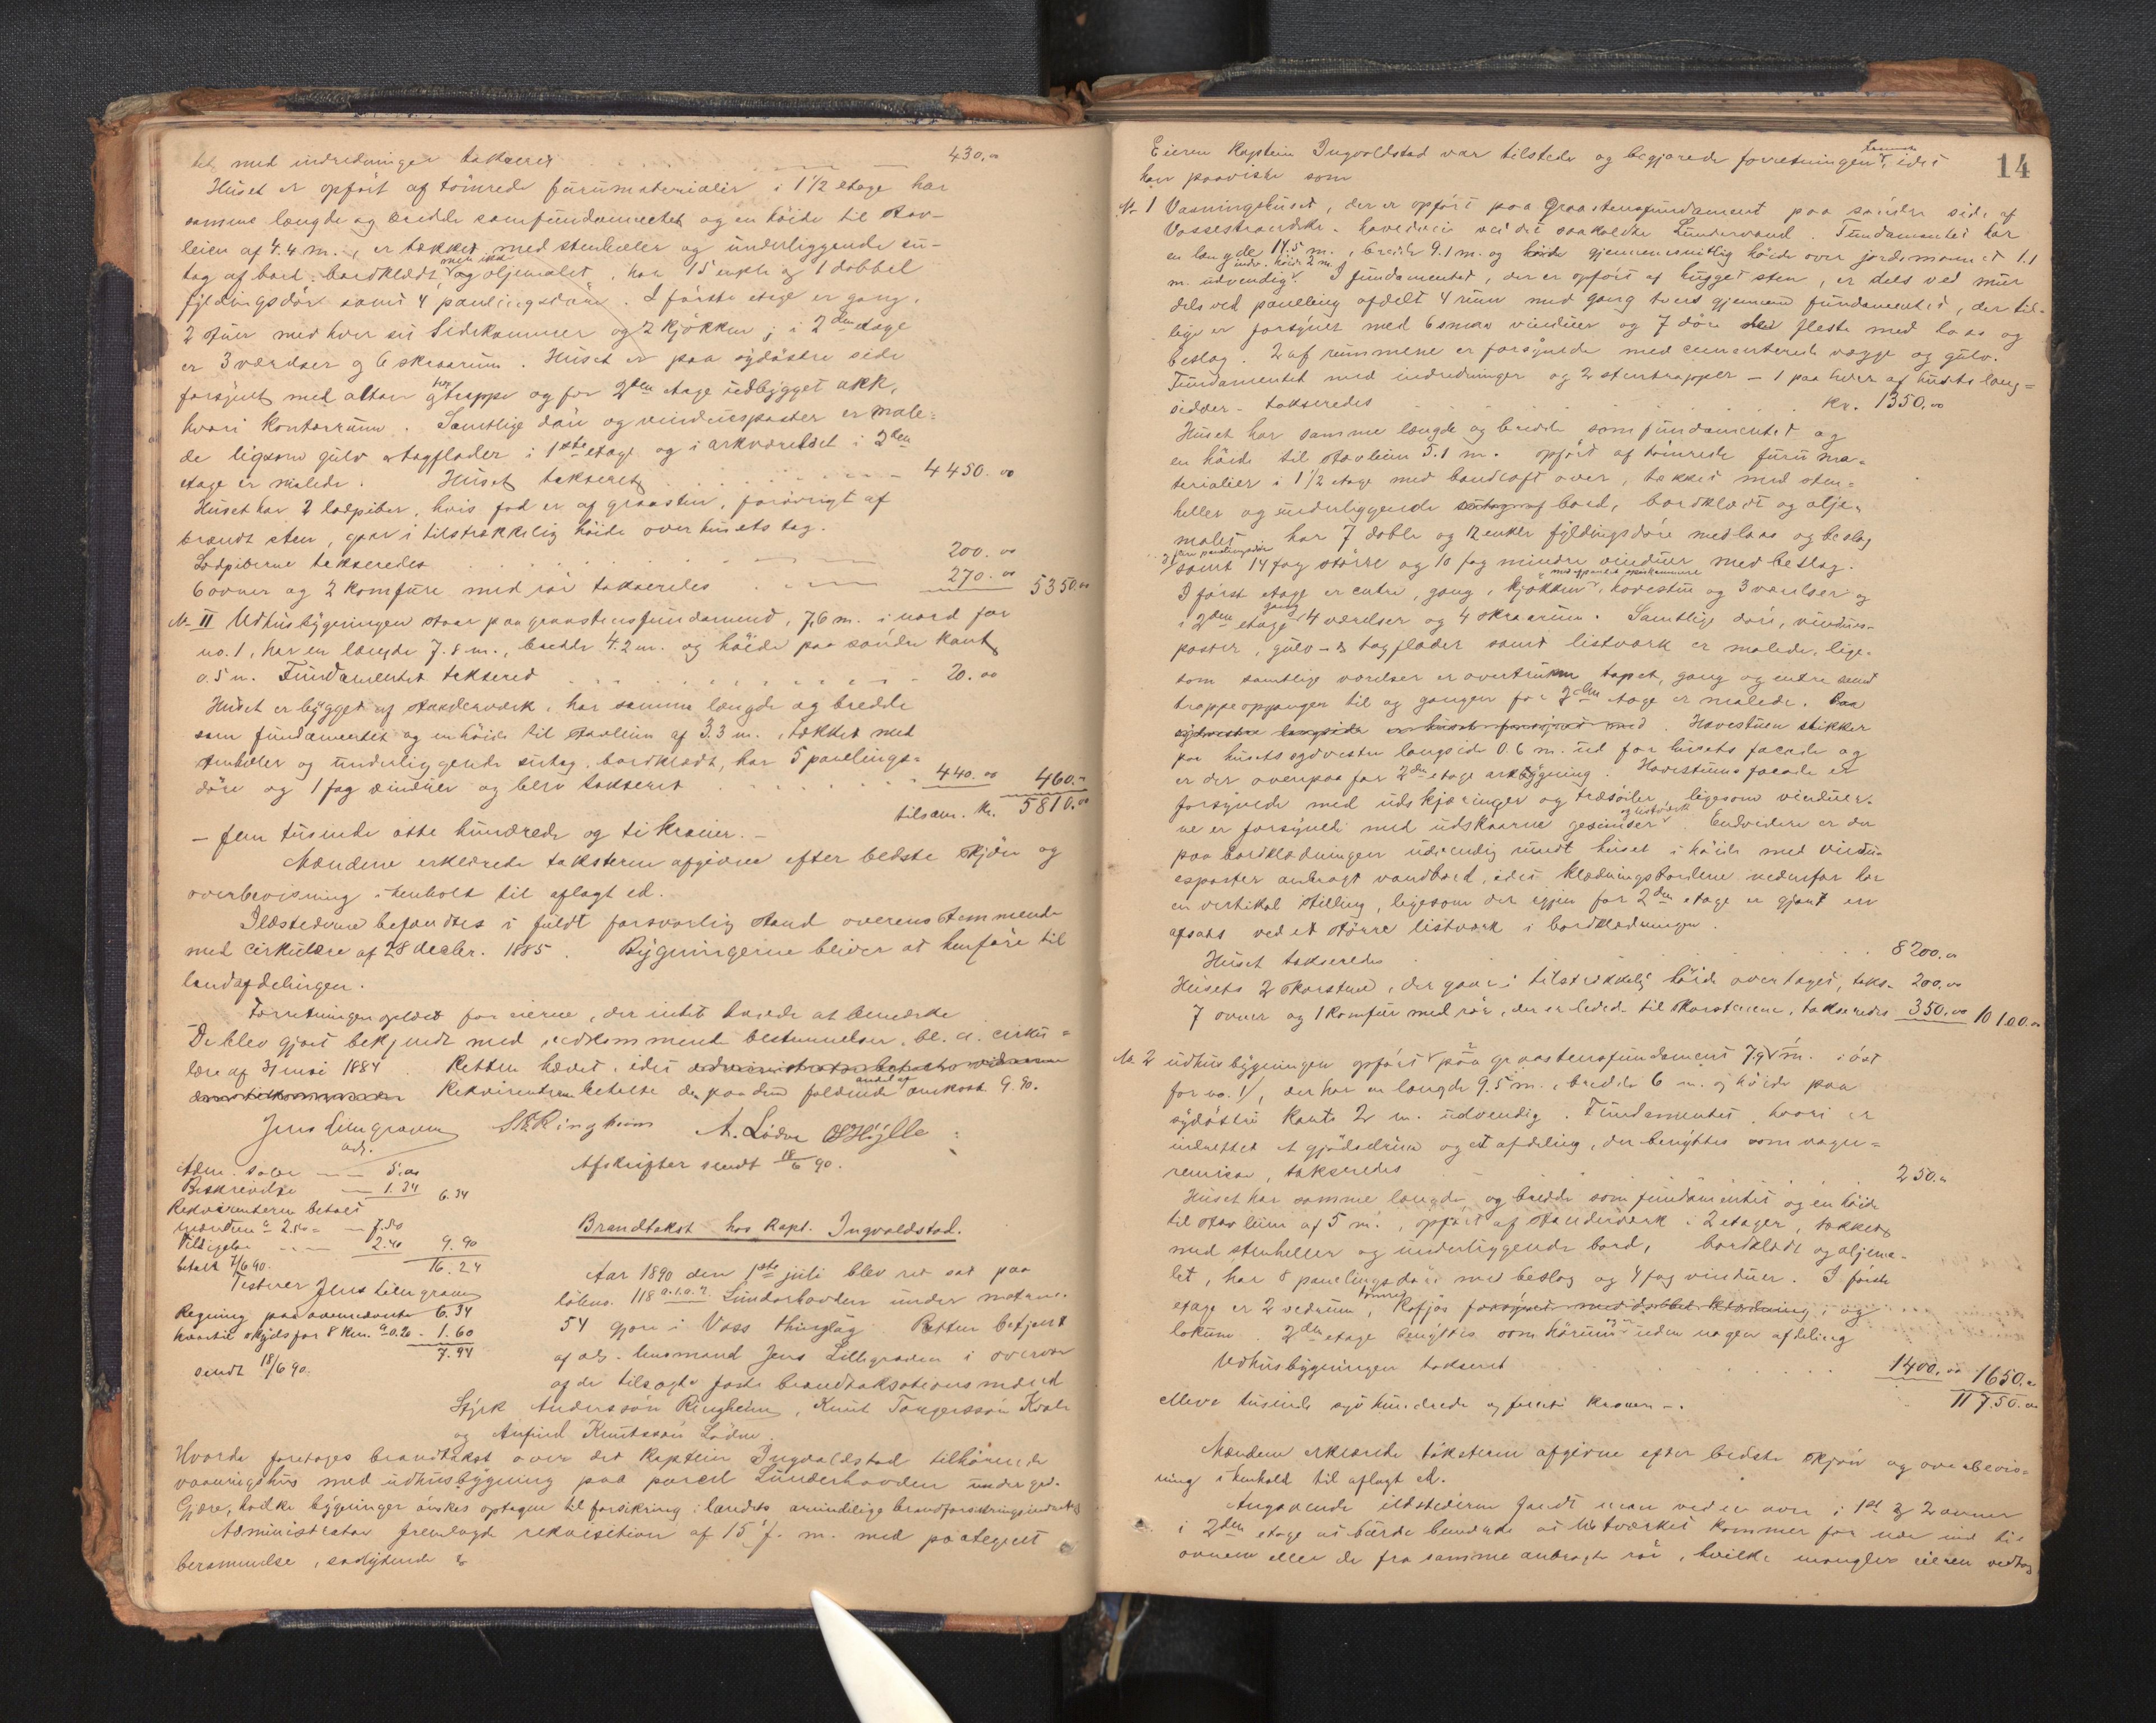 med indredninger takseres 430.00
Huset er opført af tømrede furumaterialier i 1 1/2 etage har
samme længde og bredde som fundamentet og en høide til stav-
leien af 4.4 m., er tækket med stenheller og underliggende su-
tag af bord, bordklædt, men ikke og oljemalet, har 15 enkle og 1 dobbel
fyldingsdør samt 4 panelingsdøre. I første etage er gang,
2 stuer med hver sit sidekammer og 2 kjøkken; i 2den etage
er 3 værelser og 6 skraarum. Huset er paa sydøstre side
forsynet med altan og trappe og for 2den etage udbygget ark,
hvori kontorrum. Samtlige døre og vinduesposter er male-
de ligesom gulv og tagflader i 1ste etage og i arkværelset i 2den
etage er malede. Huset takseret 4450.00
Huset har 2 lodpiber, hvis fod er af graasten, forøvrigt af
brændt sten, gaar i tilstrækkelig høide over husets tag.
Lodpiberne takseredes 200.00
6 ovner og 2 komfure med rør takseredes 270.00 5350.00
No. II Udhusbygningen staar paa graastensfundament, 7,6 m. i nord for
no. 1, har en længde 7.8 m., bredde 4.2 m. og høide paa søndre kant
0.5 m. Fundamentet takseret 20.00
Huset er bygget af standerværk, har samme længde og bredde
som fundamentet og en høide til stavleien af 3.3 m., tækket med
stenheller og underliggende sutag, bordklædt, har 5 panelings-
døre og 1 fag vinduer og blev takseret 440.00 460.-
tilsam. Kr. 5810.00
- fem tusinde otte hundrede og ti kroner. -
Mændene erklærede taksterne afgivne efter bedste skjøn og
overbevisning i henhold til aflagt ed.
Ildstederne befandtes i fuldt forsvarlig stand overensstemmende
med cirkulære af 28 decbr. 1885. Bygningerne bliver at henføre til
landafdelingen.
Forretningen oplæst for eierne, der intet havde at bemærke
De blev gjort bekjendt med vedkommende bestemmelser, bl. a. cirku-
lære af 31 mai 1884. Retten hævet, idet
Rekvirenterne betalte den paa dem faldende andel af omkost. 9.90.
Jens Lillegraven S. A. Ringheim A. Lødve O. H. Hylle
adj.
Adm. salær 5.00 Afskrifter sendt 18/6 90.
Beskrivelse 1.34 6.34
Rekvirenterne betalt
mændene a 2.50 = 7.50
Tilsigelse 2.40 9.90
betalt 7/6 90. 16.24
Testerer Jens Lillegraven
Regning paa ovennævnte 6.34
hvortil skyds for 8 Km. a 0.20 - 1.60
7.94
sendt 18/6 90.
Brandtakst hos Kapt. Ingvoldstad.
Aar 1890 den 1ste juli blev ret sat paa
løbenr. 118 Lunderhovden under matr.nr.
54 Gjære i Voss thinglag. Retten betjent
af adj. lensmand Jens Lillegraven i overvær
af de tilsagte faste brandtaksationsmænd
Styrk Anderssøn Ringheim, Knut Torgerssøn Kvale
og Anfind Knutssøn Lødve.
Hvorda foretages brandtakst over det Kaptein Ingvoldstad tilhørende
vaaningshus med udhusbygning paa parcel Lunderhovden under grd.
Gjære, hvilke bygninger ønskes optagen til forsikring i landets almindelige brandforsikringsindretning
Administrator fremlagde rekvisition af 15 f. m. med paategnet
berammelse, saalydende
14
Eieren Kaptein Ingvoldstad var tilstede og begjærede forretningen fremmet, idet
han paaviste som
No. 1 Vaaningshuset, der er opført paa graastensfundament paa søndre side af
Vossestrandske hovedvei ved det saakaldte Lundervand. Fundamentet har
en længde 14.5 m., bredde 9.1 m. og gjennemsnitlig høide over jordsmonnet 1.1
m. udvendig, indv. høide 2 m. I fundamentet, der er opført af hugget sten, er dels ved mur
dels ved paneling afdelt 4 rum med gang tvers gjennem fundamentet, der til-
lige er forsynet med 6 smaa vinduer og 7 døre de fleste med laas og
beslag. 2 af rummene er forsynede med cementerede vægge og gulv.
Fundamentet med indredninger og 2 stentrapper - 1 paa hver af husets lang-
sidder - takseredes Kr. 1350.00
Huset har samme længde og bredde som fundamentet og
en høide til stavleien 5.1 m. opført af tømrede furuma-
terialier i 1 1/2 etage med bandloft over, tækket med sten-
heller og underliggende bord, bordklædt og olje-
malet, har 7 doble og 12 enkle fyldingsdøre med laas og beslag
samt 14 fag større og 10 fag mindre vinduer med beslag.
I først etage er entre, gang, kjøkken med afpanelet spiskammer, havestue og 3 værelser og
i 2den etage gang 4 værelser og 4 skraarum. Samtlige døre, vindues-
poster, gulv- og tagflader samt listværk er malede, lige-
som samtlige værelser er overtrukne tapet, gang og entre samt
trappeopgangen til og gangen for 2den etage er malede. Paa
sydvestre langside er huset forsynet med. Havestuen stikker
paa husets sydvestre langside 0.6 m. ud for husets facade og
er der ovenpaa for 2den etage arkbygning. Havestuens facade er
forsynede med udskjæringer og træsøiler, ligesom vinduer-
ne er forsynede med udskaarne gesimser og listværk. Endvidere er der
paa bordklædningen udvendig rundt huset i høide med vindu-
esposter anbragt vandbord, idet klædningsbordene nedenfor har
en vertikal stilling, ligesom der igjen for 2den etage er gjort en
afsats ved et større listværk i bordklædningen.
Huset takseredes 8200.00
Husets 2 skorstene, der gaar i tilstrækkelig høide over taget, taks. 200.00
7 ovner og 1 komfur med rør, der er ledede til skorstenene, takseredes 350.00 10100.00
No. 2 udhusbygningen opført paa graastensfundament 7.9 m. i øst
for no. 1, der har en længde 9.5 m., bredde 6 m. og høide paa
sydøstre kant 2 m. udvendig. Fundamentet, hvori er
indrettet et gjødselrum og et afdeling, der benyttes som vogn-
remisse, takseredes 250.00
Huset har samme længde og bredde som fundamentet og en høide
til stavleien af 5 m., opført af standerværk i 2 etager, tækket
med stenheller og underliggende bord, bordklædt og oljema-
let, har 8 panelingsdøre med beslag og 4 fag vinduer. I første
etage er 2 vedrum, tømret kofjøs forsynet med dobbel klædning, og
lokum. 2den etage benyttes som hørum uden nogen afdeling
Udhusbygningen takseret 1400.00 1650.00
11750.00
elleve tusinde syv hundrede og femti kroner -.
Mændene erklærede taksterne afgivne efter bedste skjøn og overbevis-
ning i henhold til aflagt ed.
Angaaende ildstederne fandt man ved en ovn i 1st og 2 ovner
i 2den etage at burde bemærke at listværket kommer for nær ind til
ovnene eller de fra samme anbragte rør, hvilke mangler eieren vedtog